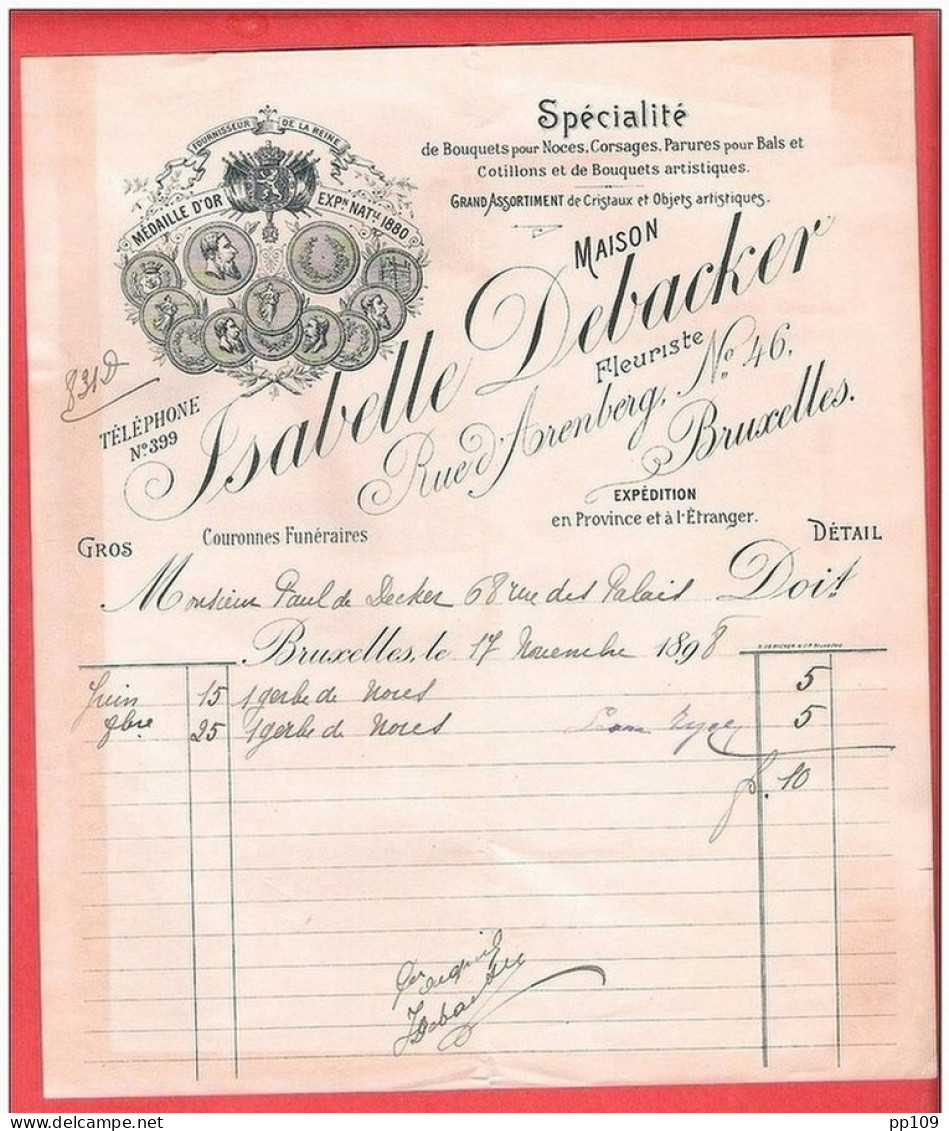 FOURNISSEUR DE LA REINE
MÉDAILLE D'OR EXPN NATLE 1880
Spécialité
de Bouquets pour Noces, Corsages, Parures pour Bals et
Cotillons et de Bouquets artistiques.
GRAND ASSORTIMENT de Cristaux et Objets artistiques.
MAISON
Isabelle Debacker
Fleuriste
Rue d'Arenberg, No 46,
Bruxelles.
831D
TÉLÉPHONE
No 399
EXPÉDITION
en Province et à l'Étranger.
GROS Couronnes Funéraires DÉTAIL
Monsieur Paul de Decker 68 rue des Palais Doit
Bruxelles, le 17 Novembre 1898
Juin 15 1 gerbe de Noces 5
9bre 25 1 gerbe de Noces 5
f. 10
Pour acquit
IDebacker
pp109